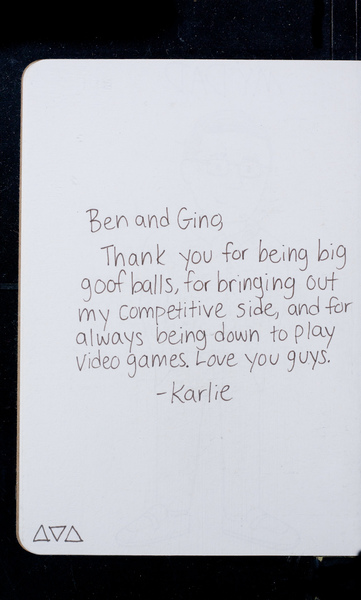 Ben and Gino,
Thank you for being big
goof balls, for bringing out
my competitive side, and for
always being down to play
video games. Love you guys.
-Karlie